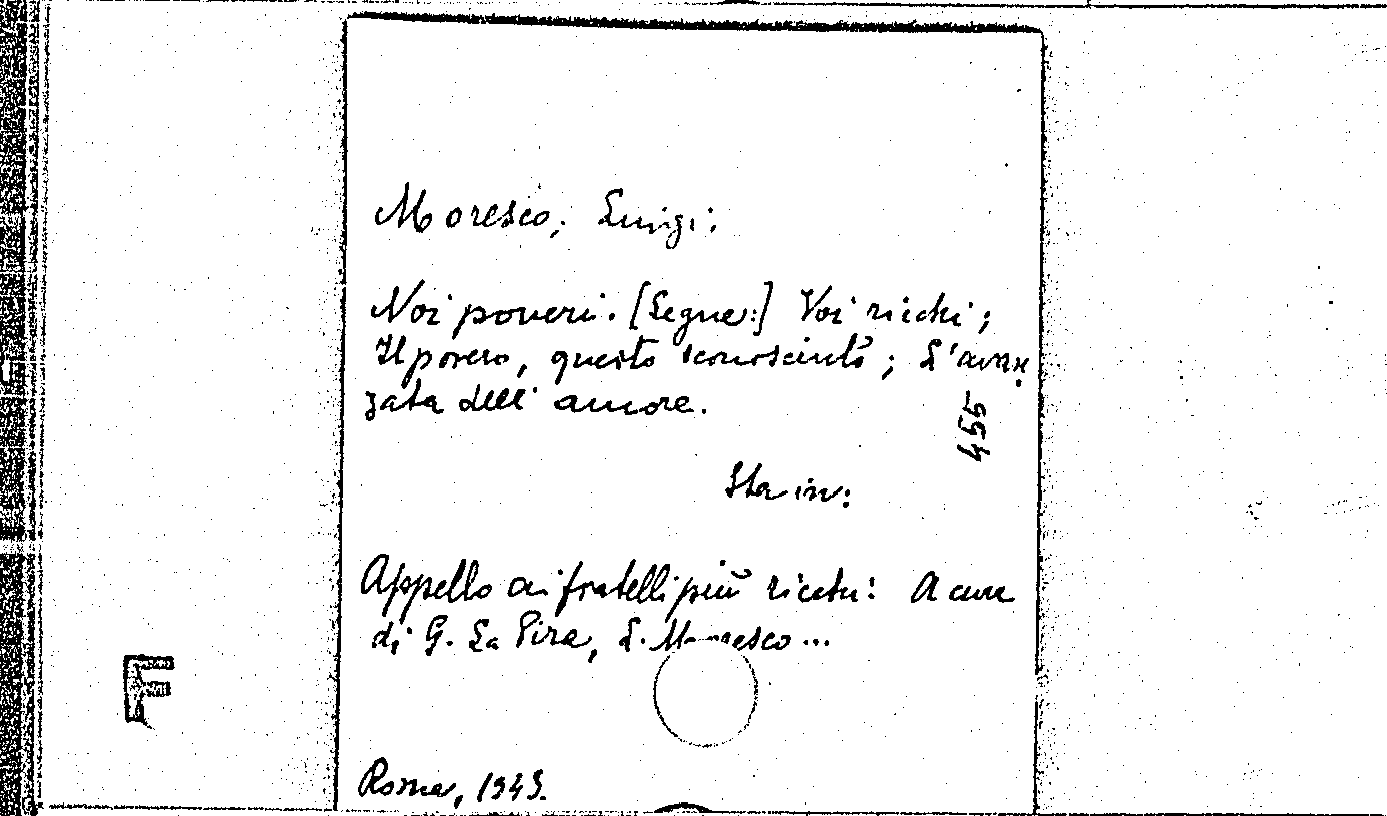 Moresco, Luigi:
Noi poveri. [Segue:] Voi ricchi;
Il povero, questo sconosciuto; L'avan
zata dell'amore.
455
Sta in:
Appello ai fratelli più ricchi: A cura
di G. La Pira, L. Moresco...
F
Roma, 1943.